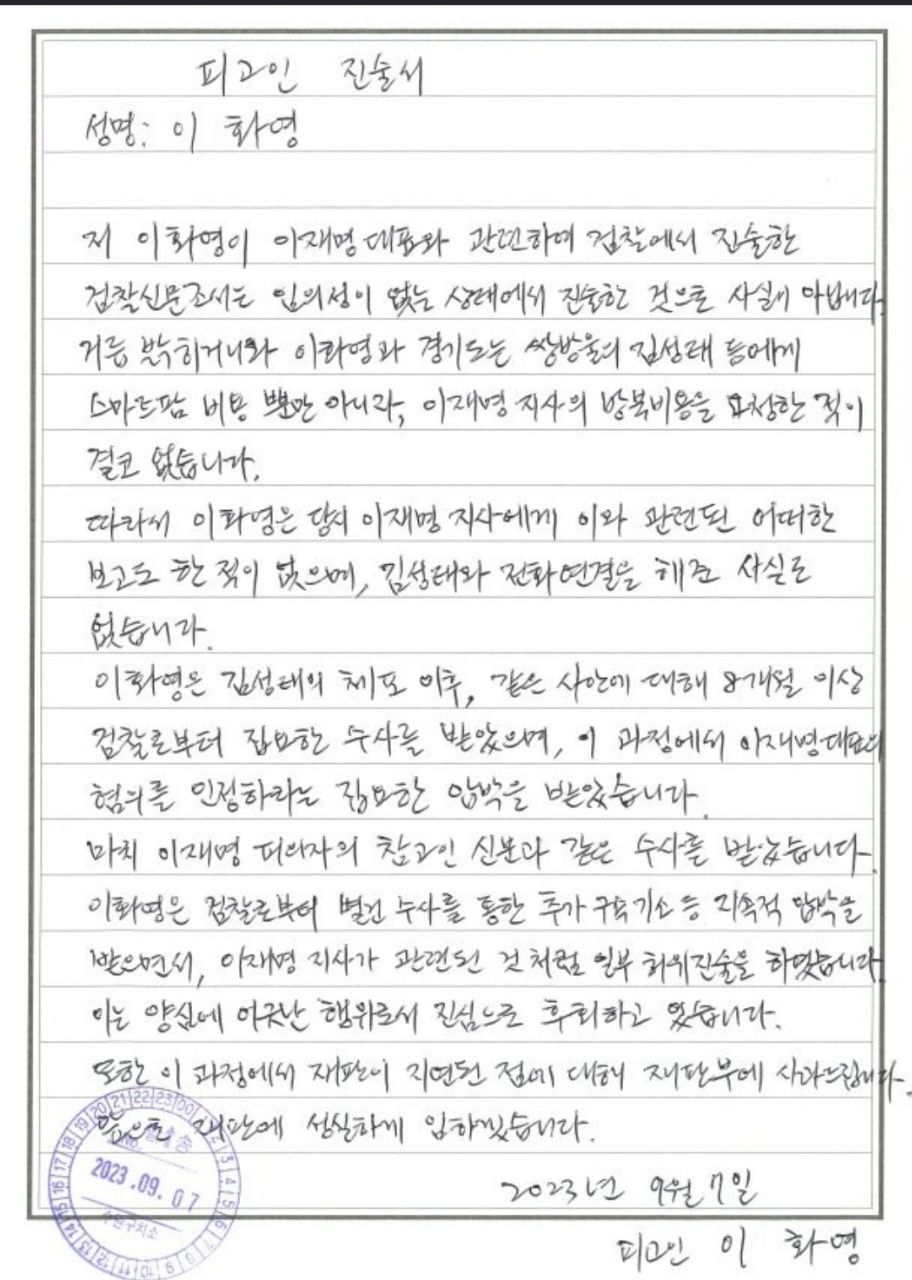 피고인 진술서
성명: 이 화영
저 이화영이 이재명 대표와 관련하여 검찰에서 진술한
검찰신문조서는 임의성이 없는 상태에서 진술한 것으로 사실이 아닙니다.
거듭 밝히거니와 이화영과 경기도는 쌍방울의 김성태 등에게
스마트팜 비용 뿐만 아니라, 이재명 지사의 방북비용을 요청한 적이
결코 없습니다.
따라서 이화영은 당시 이재명 지사에게 이와 관련된 어떠한
보고도 한 적이 없으며, 김성태와 전화연결을 해준 사실도
없습니다.
이화영은 김성태의 체포 이후, 같은 사안에 대해 8개월 이상
검찰로부터 집요한 수사를 받았으며, 이 과정에서 이재명대표의
혐의를 인정하라는 집요한 압박을 받았습니다.
마치 이재명 피의자의 참고인 신분과 같은 수사를 받았습니다.
이화영은 검찰로부터 별건 수사를 통한 추가 구속기소 등 지속적 압박을
받으면서, 이재명 지사가 관련된 것처럼 일부 허위진술을 하였습니다.
이는 양심에 어긋난 행위로서 진심으로 후회하고 있습니다.
또한 이 과정에서 재판이 지연된 점에 대해 재판부에 사과드립니다.
앞으로 재판에 성실하게 임하겠습니다.
2023.09.07
수원구치소
2023년 9월 7일
피고인 이 화영